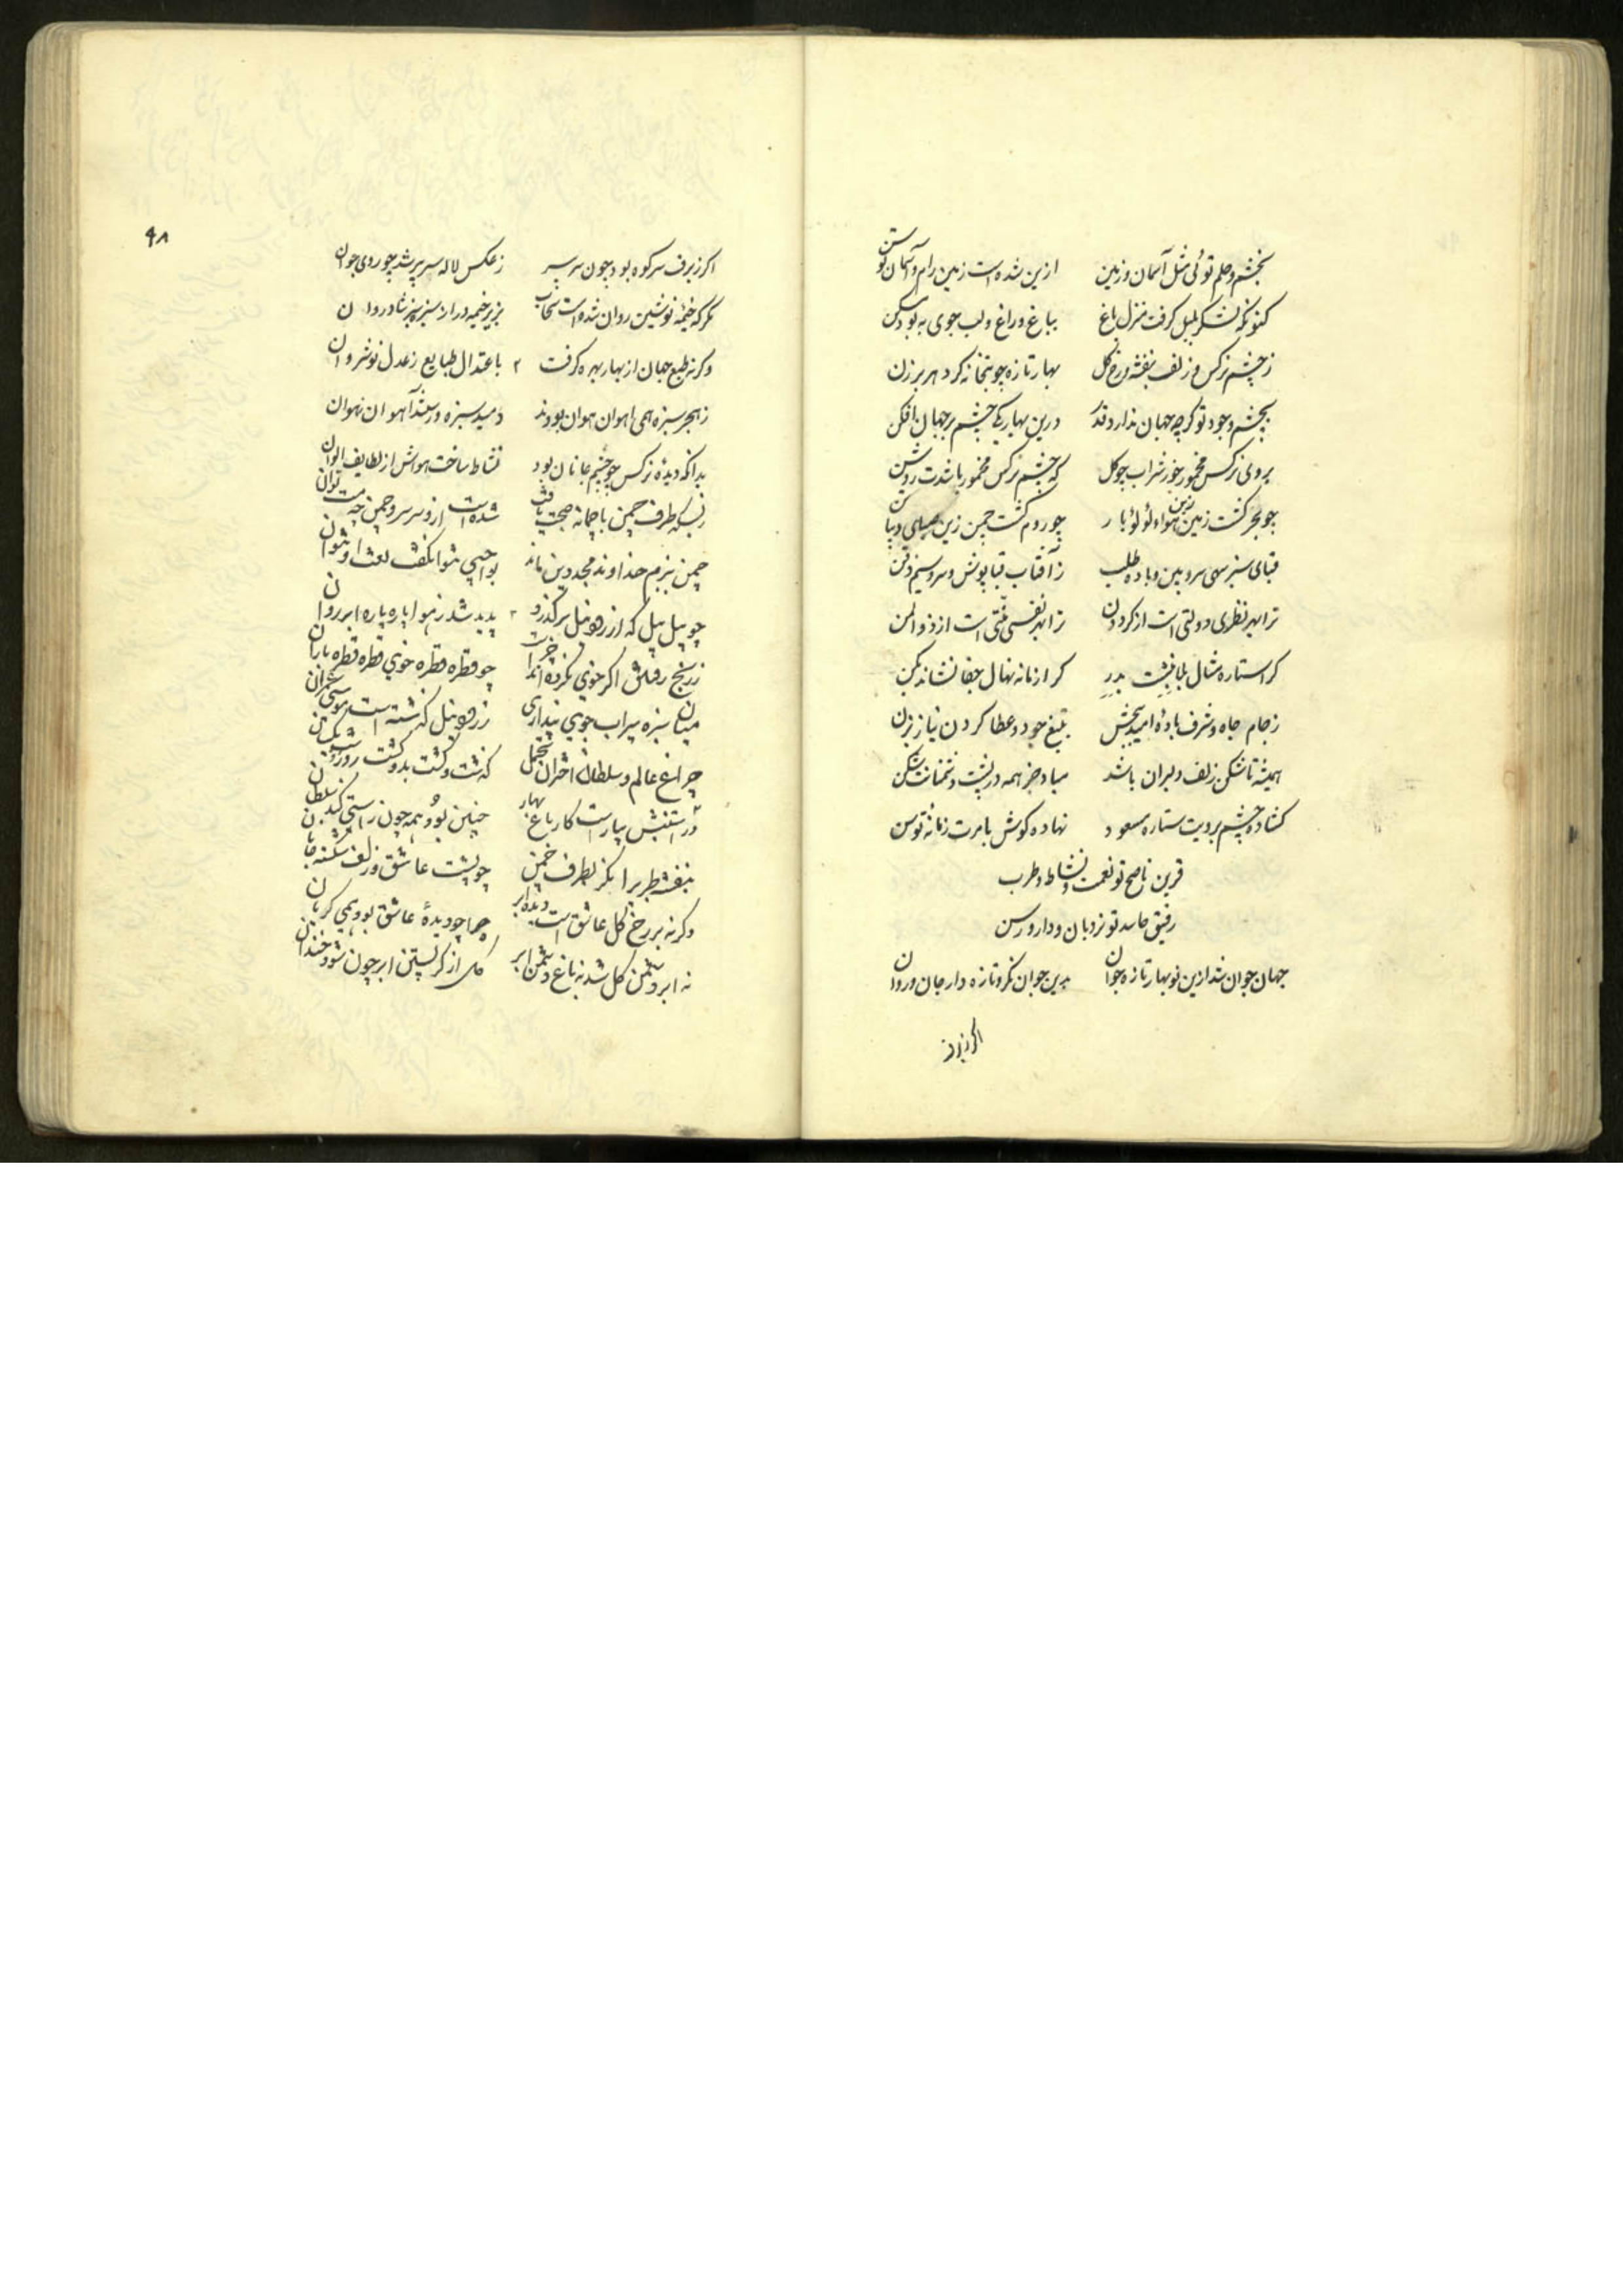 بخشم و حلم توئی مثل آسمان و زمین ازین شده است زمین رام و آسمان توسن
کنونکه لشکر بلبل گرفت منزل باغ بباغ و راغ و لب جوی به بود مسکن
ز چشم نرکس و زلف بنفشه و رخ کل بهار تازه چو بتخانه کرد هر برزن
بچشم وجود تو کرچه جهان ندارد قدر درین بهار یکی چشم بر جهان افکن
بروی نرکس مخمور خور شراب چو کل که چشم نرکس مخمور باشدت روشن
چو بحر کشت زمین زین هواء لؤلؤ بار چو روم کشت چمن زین دیبا
قبای سبز سهی سرو بین و باده طلب ز آفتاب قباپوش و سرو سیم ذقن
ترا بهر نظری دولتی است از کردون ترا بهر نفسی منتی است از ذو المن
کر استاره مثال بلا نبشت بدر کر از زمانه نهال جفا نشاند بکن
ز جام جاه و شرف باده امید بچش بتیغ جود و عطا کردن نیاز بزن
همیشه تا شکن زلف دلبران باشد مباد جز همه در پشت دشمنانت شکن
کشاده چشم برویت ستاره مسعود نهاده کوش بامرت زمانه توسن
قرین ناصح تو نعمت و نشاط و طرب
رفیق حاسد تو نردبان و دار و رسن
جهان جوان شد ازین نوبهار تازه جوان بدین جوان نکر و تازه دار جان و روان
اکر زبرف
۹۸
اکر زبرف سر کوه بود چون سر پیر ز عکس لاله سر پیر شد چو روی جوان
مکر که خیمه نوشین روان شده است سحاب بزیر خیمه در از سبزه شادروان
وکرنه طبع جهان از بهار بهره کرفت باعتدال طبایع ز عدل نوشروان
ز هجر سبزه همی اهوان هوان بودند دمید سبزه و رستند آهوان ز هوان
بدانکه دیده نرکس چو چشم جانان بود نشاط ساخت هواش از لطایف الوان
ز بسکه طرف چمن با چمانه صحبت یافت شده است از و سر سرو چمن
چمن ببزم خداوند مجد دین ماند
چو پیل پیل که از رود نیل برکذرد پدید شد ز هوا پاره پاره ابر روان
ز رنج رفتن اکر خوی نکرده اند چرا چو قطره قطره خوی قطره قطره باران
میان سبزه سیراب جوی پنداری ز رود نیل کذشته است موسی عمران
چراغ عالم و سلطان اختران کذشت و کشت بدو کشت روز و شب یکسان
بیاراست کار باغ بهار چنین بود همه چون راستی کند سلطان
بنفشه طری را نکر بطرف چمن چو پشت عاشق و زلف شکسته جانان
وکرنه بر رخ کل عاشق است دیده ابر چرا چو دیده عاشق بود همی کریان
نه ابر دشمن کل شد نه باغ دشمن ابر کل از کریستن ابر چون شود خندان